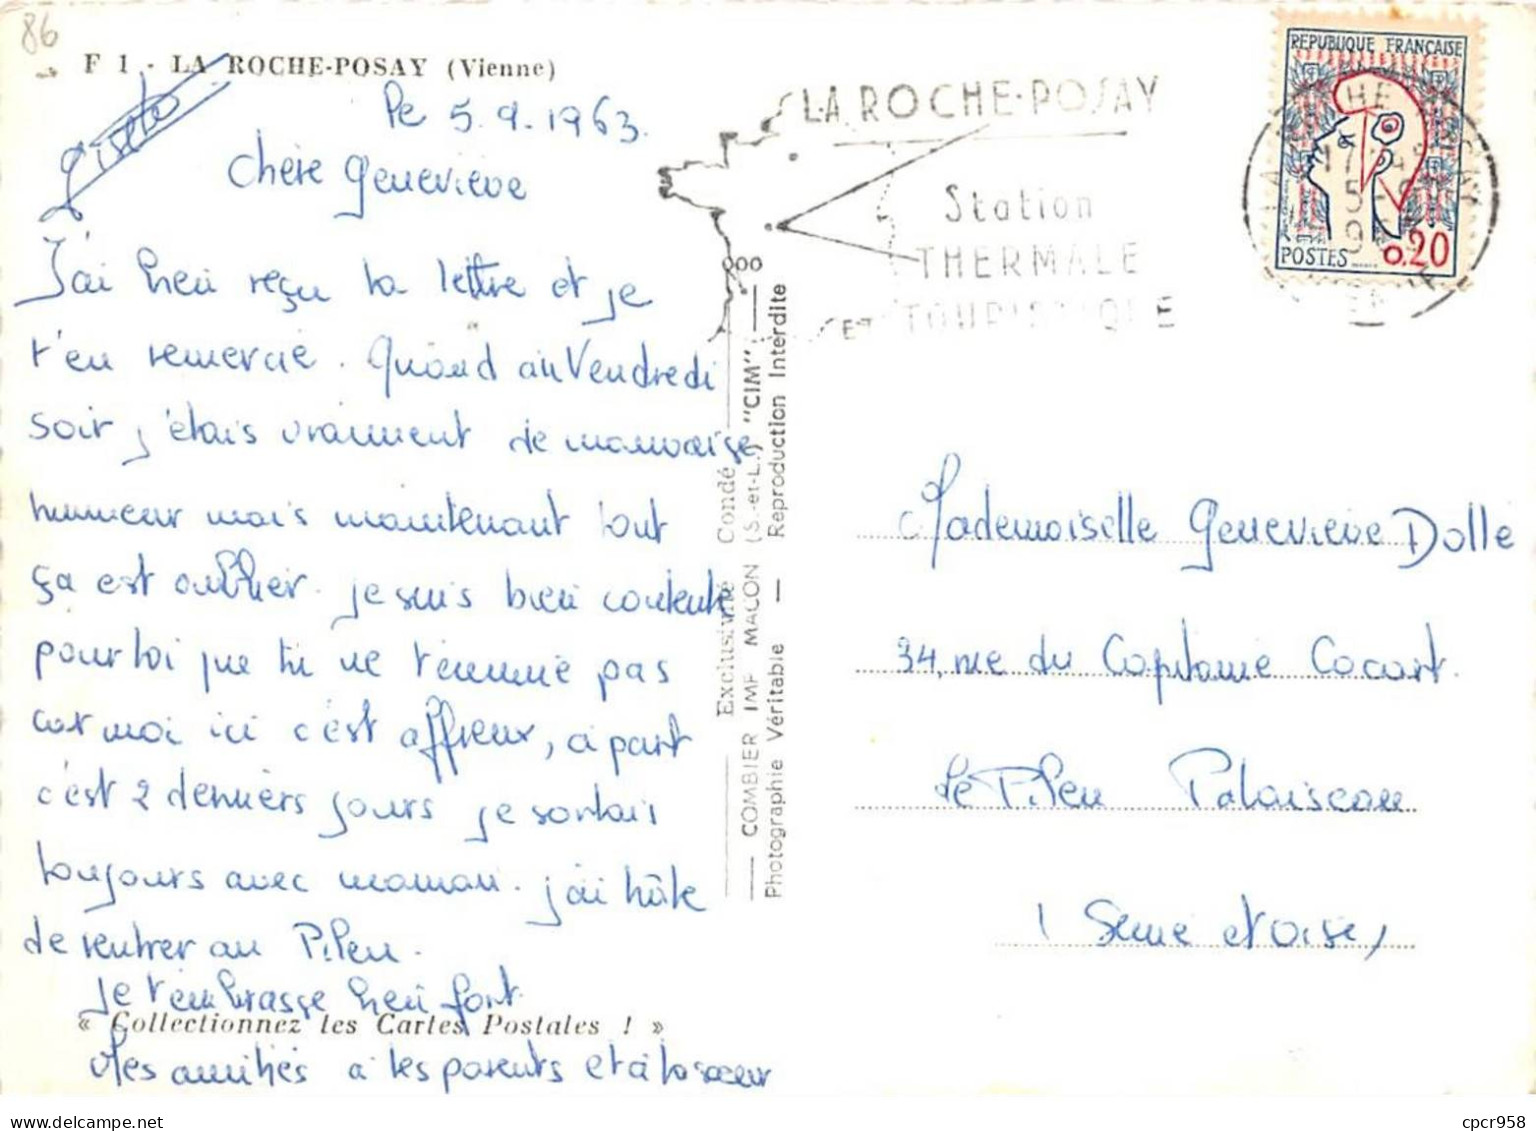 86
F 1 - LA ROCHE-POSAY (Vienne)
Gisèle
le 5.9.1963.
Chère Geneviève
J'ai bien reçu ta lettre et je
t'en remercie. Quand au Vendredi
soir j'étais vraiment de mauvaise
humeur mais maintenant tout
ça est oublier. je suis bien contente
pour toi que tu ne t'ennuie pas
car moi ici c'est affreux, à part
c'est 2 derniers jours je sortais
toujours avec maman. j'ai hâte
de rentrer au Pileu.
je t'embrasse bien fort
« Collectionnez les Cartes Postales ! »
Mes amitiés à tes parents et à ta soeur
Exclusivité Condé
COMBIER IMP. MACON (S.-et-L.) "CIM"
Photographie Véritable — Reproduction Interdite
LA ROCHE-POSAY
Station
THERMALE
ET TOURISTIQUE
REPUBLIQUE FRANÇAISE
POSTES 0,20
LA ROCHE POSAY
17
5-9
VIENNE
Mademoiselle Geneviève Dolle
34, rue du Capitaine Cocart.
Le Pileu Palaiseau
(Seine et Oise)
cpcr958